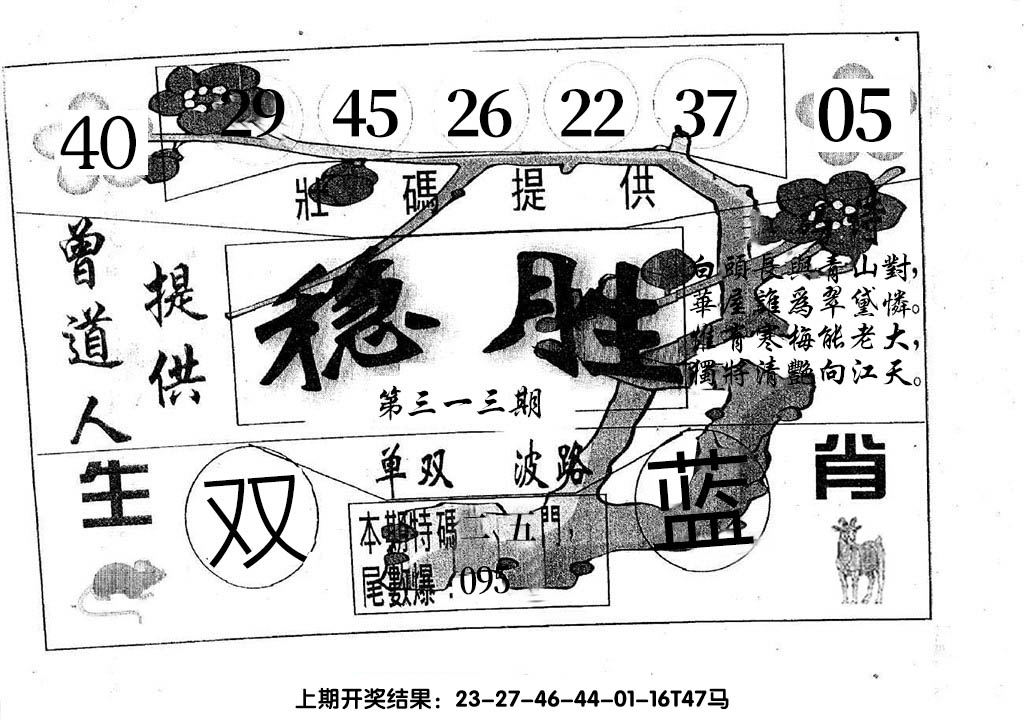 40 29 45 26 22 37 05
壯碼提供
特
曾道人
提供
稳胜
第三一三期
白頭長與青山對，
華屋誰爲翠黛憐。
惟有寒梅能老大，
獨將清艷向江天。
生肖
单双 波路
双
蓝
本期特碼二、五門，
尾數爆：095
上期开奖结果：23-27-46-44-01-16T47马